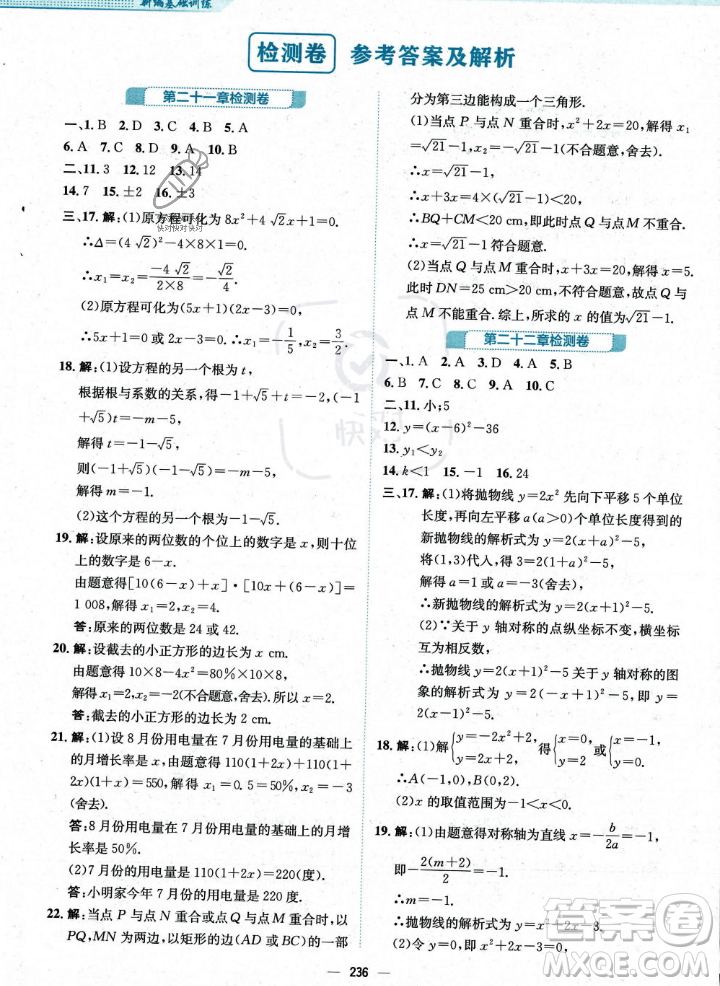 新编基础训练
检测卷 参考答案及解析
第二十一章检测卷
一、1. B 2. D 3. C 4. B 5. A
6. A 7. C 8. D 9. A 10. B
二、11. 3 12. 12 13.
14. 7 15. ±2 16. ±3
三、17. 解:(1)原方程可化为 8x²+4√2x+1=0.
∴Δ=(4√2)²-4×8×1=0.
∴x₁=x₂=(-4√2)/(2×8)=-√2/4.
(2)原方程可化为(5x+1)(2x-3)=0.
∴5x+1=0 或 2x-3=0.∴x₁=-1/5,x₂=3/2.
18. 解:(1)设方程的另一个根为 t,
根据根与系数的关系,得-1-√5+t=-2,(-1
+√5)t=-m-5,
解得 t=-1+√5,
则(-1-√5)(-1+√5)=-m-5,
解得 m=-1.
(2)这个方程的另一个根为-1-√5.
19. 解:设原来的两位数的个位上的数字是 x,则十位
上的数字是 6-x.
由题意得[10(6-x)+x]·[10x+(6-x)]=
1 008,解得 x₁=2,x₂=4.
答:原来的两位数是 24 或 42.
20. 解:设截去的小正方形的边长为 x cm.
由题意得 10×8-4x²=80%×10×8,
解得 x₁=2,x₂=-2(不合题意,舍去).所以 x=2.
答:截去的小正方形的边长为 2 cm.
21. 解:(1)设 8 月份用电量在 7 月份用电量的基础上
的月增长率为 x,由题意得 110(1+2x)+110(1+
2x)(1+x)=550,解得 x=0.5=50%,x=-3
(舍去).
答:8月份用电量在7月份用电量的基础上的月增
长率是 50%.
(2)7月份用电量是 110(1+2x)=220(度).
答:小明家今年7月份用电量是 220 度.
22. 解:当点 P 与点 N 重合或点 Q 与点 M 重合时,以
PQ,MN 为两边,以矩形的边(AD 或 BC)的一部
分为第三边能构成一个三角形.
(1)当点 P 与点 N 重合时,x²+2x=20,解得 x₁
=√21-1,x₂=-√21-1(不合题意,舍去).
∴x=√21-1.
∴x+3x=4×(√21-1)<20.
∴BQ+CM<20 cm,所以此时点 Q 与点 M 不重合.
∴x=√21-1 符合题意.
(2)当点 Q 与点 M 重合时,x+3x=20,解得 x=5.
此时 DN=25 cm>20 cm,不合题意,所以点 Q 与
点 M 不能重合.综上,所求的 x 的值为√21-1.
第二十二章检测卷
一、1. A 2. A 3. D 4. A 5. A
6. B 7. B 8. A 9. A 10. C
二、11. 小;5
12. y=(x-6)²-36
13. y₁<y₂
14. k<1 15. -1 16. 24
三、17. 解:(1)将抛物线 y=2x² 先向下平移 5 个单位
长度,再向左平移 a(a>0)个单位长度,得到的
新抛物线的解析式为 y=2(x+a)²-5,
将(1,3)代人,得 3=2(1+a)²-5,
解得 a=1 或 a=-3(不合题意,舍去).
∴新抛物线的解析式为 y=2(x+1)²-5.
(2)∵关于 y 轴对称的点纵坐标不变,横坐标
互为相反数,
∴抛物线 y=2(x+1)²-5 关于 y 轴对称的图
象的解析式为 y=2(-x+1)²-5,即 y=
2(x-1)²-5.
18. 解:(1)解{y=-x²+2, y=2x+2, 得{x=0, y=2 或{x=-2, y=-2.
∴A(-2,-2),B(0,2).
(2)x 的取值范围为-2<x<0.
19. 解:(1)由题意得对称轴为直线 x=-b/2a=-1,
即-2(m+2)/2=-1,
∴m=-1.
∴抛物线的解析式为 y=x²+2x-3.
(2)令 y=0,即 x²+2x-3=0,解得 x₁=1,x₂=
236
快对
快对快对快对
答案卷
MXQE.COM